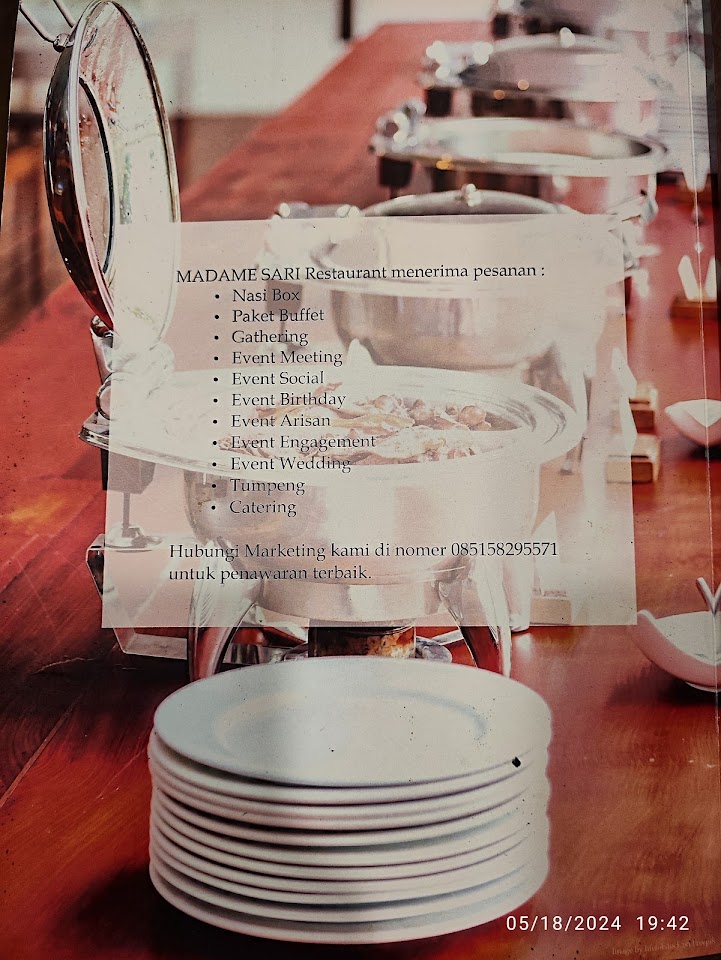 MADAME SARI Restaurant menerima pesanan :
• Nasi Box
• Paket Buffet
• Gathering
• Event Meeting
• Event Social
• Event Birthday
• Event Arisan
• Event Engagement
• Event Wedding
• Tumpeng
• Catering
Hubungi Marketing kami di nomer 085158295571
untuk penawaran terbaik.
05/18/2024 19:42
Image by